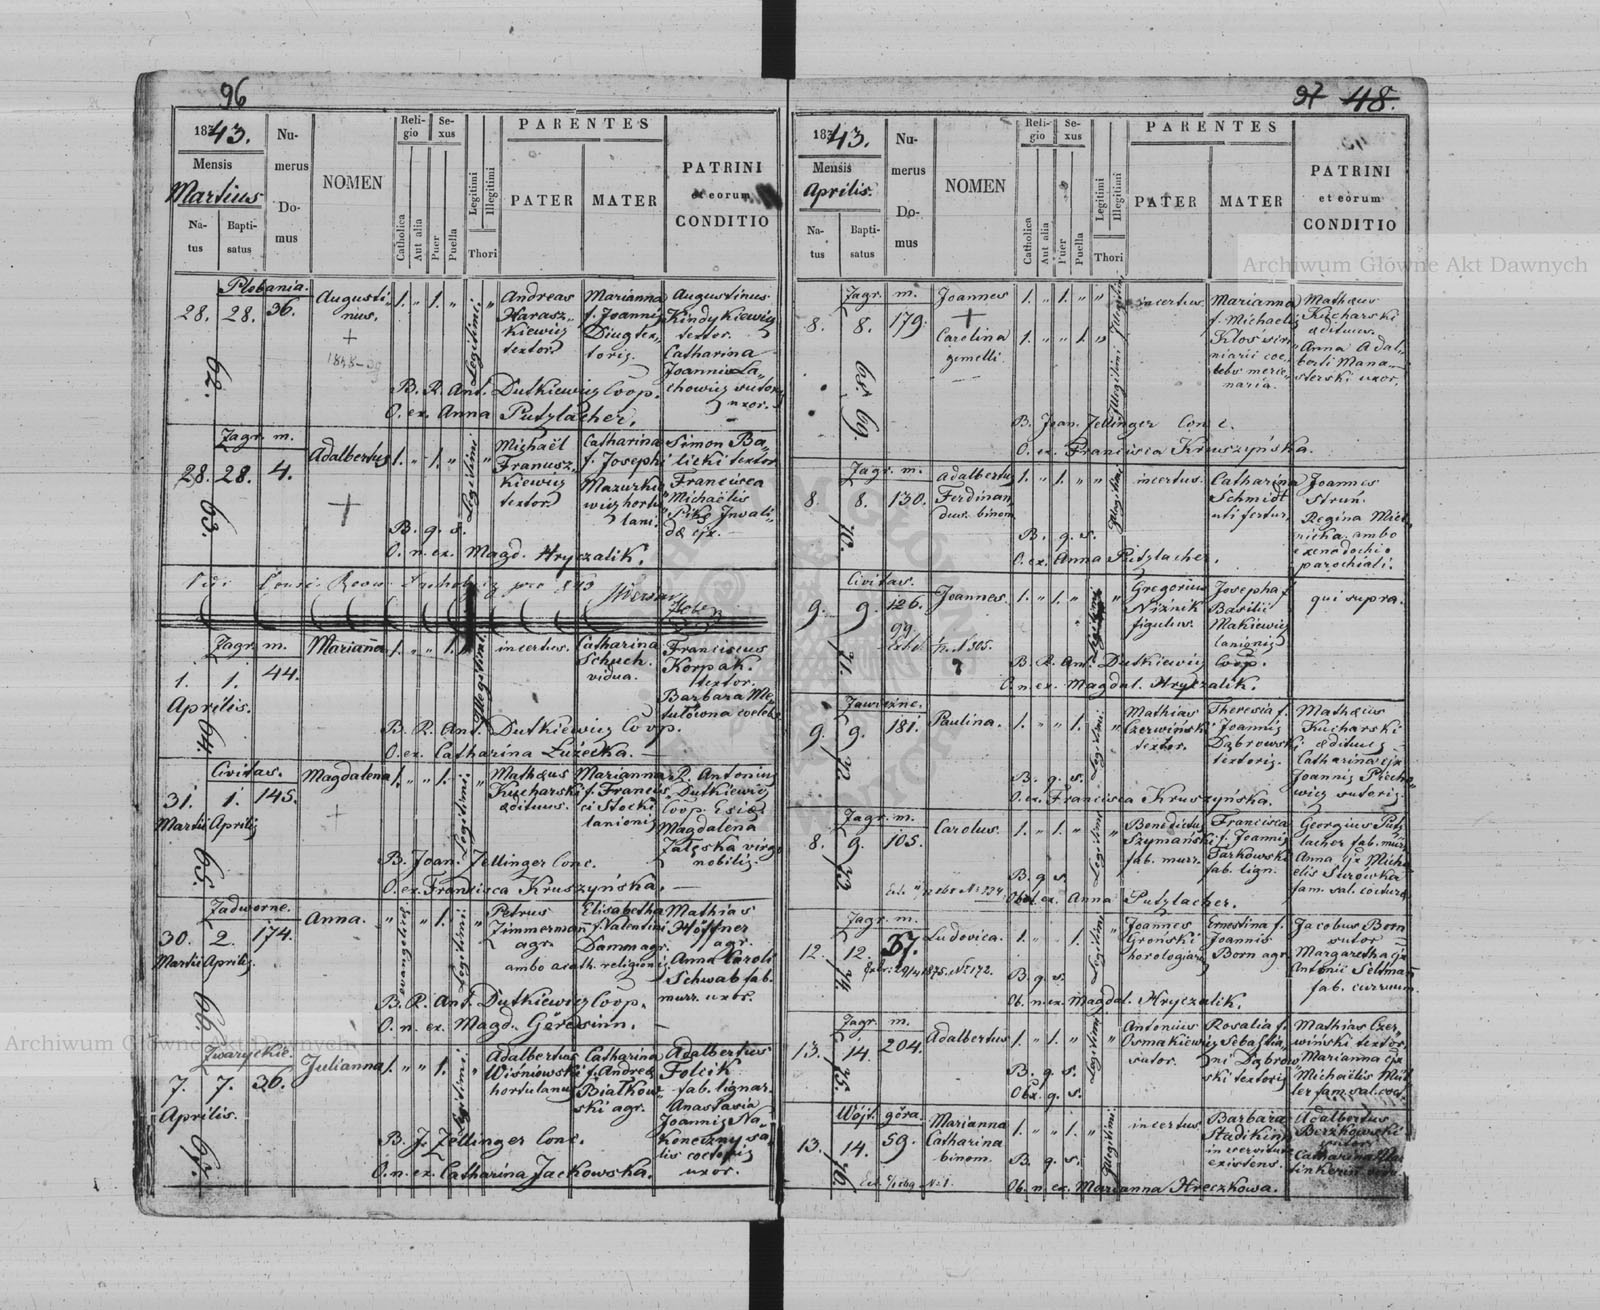 96
1843.
Mensis
Martius
Na-
tus
Bapti-
satus
Nu-
merus
Do-
mus
NOMEN
Reli-
gio
Catholica
Aut alia
Se-
xus
Puer
Puella
Legitimi
Illegitimi
Thori
PARENTES
PATER
MATER
PATRINI
et eorum
CONDITIO
Plebania.
28. 28. 36.
62.
Augusti-
nus.
+
1. " 1. " "
Legitimi.
Andreas
Harasz-
kiewicz
textor.
Marianna
f. Joannis
Diug tex-
toris.
Augustinus
Kindykiewicz
textor.
Catharina
Joannis La-
chowicz sutoris
uxor.
B. R. Ant. Dutkiewicz Coop.
O. ex. Anna Putzlacher.
Zagr. m.
28. 28. 4.
63.
Adalbertus
+
1. " 1. " "
Legitimi
Michaël
Franusz-
kiewicz
textor.
Catharina
f. Josephi
Mazurke-
wicz hortu-
lani.
Simon Ba-
licki textor
Francisca
Michaëlis
Invali-
dæ ejx.
B. q. s.
O. n. ex. Magd. Hryczalik.
Zagr. m.
1. 1. 44.
Aprilis.
64.
Marianna
1. " " 1.
Illegitimi
incertus.
Catharina
Schuch.
vidua.
Franciscus
Korpak.
textor.
Barbara Me-
tulówna coelebs
B. R. Ant. Dutkiewicz Coop.
O. ex. Catharina Luzecka.
Civitas.
31. 1. 145.
Martii Aprilis
65.
Magdalena
+
1. " " 1. "
Legitimi.
Mathæus
Kucharski
ædituus.
Marianna
f. Francis-
ci Stocki
lanionis
R. Antonius
Dutkiewicz
Coop. Exiæ
Magdalena
Zaleska virgo
nobilis.
B. Joan. Zellinger Conc.
O. ex. Francisca Kruszyńska.
Zadworne.
30. 2. 174.
Martii Aprilis.
66.
Anna.
evangelica
" " 1. "
Legitimi
Petrus
Zimmerman
agr.
Elisabetha
f. Valentini
Damm agr.
ambo acath. religionis
Mathias
Höffner
agr.
Anna Caroli
Schwab fab.
murr. uxor.
B. R. Ant. Dutkiewicz Coop.
O. n. ex. Magd. Göresinn.
Zwaryckie.
7. 7. 36.
Aprilis.
67.
Julianna
1. " " 1. "
Legitimi
Adalbertus
Wiśniowski
hortulanus
Catharina
f. Andreæ
Białkow-
ski agr.
Adalbertus
Folcik
fab. lignar.
Anastasia
Joannis Na-
koneczny sa-
lis coctoris
uxor.
B. J. Zellinger Conc.
O. n. ex. Catharina Jackowska.
97 48.
1843.
Mensis
Aprilis.
Na-
tus
Bapti-
satus
Nu-
merus
Do-
mus
NOMEN
Reli-
gio
Catholica
Aut alia
Se-
xus
Puer
Puella
Legitimi
Illegitimi
Thori
PARENTES
PATER
MATER
PATRINI
et eorum
CONDITIO
Zagr. m.
8. 8. 179.
68. 69.
Joannes
+
Carolina
gemelli
1. " 1. " "
1. " " 1. "
Illegitimi Illegitimi
incertus.
Marianna
f. Michaelis
Kłos
coe-
lebs merce-
naria.
Mathæus
Kucharski
ædituus.
Anna Adal-
berti Mana-
sterski uxor.
B. Joan. Zellinger Conc.
O. ex. Francisca Kruszyńska.
Zagr. m.
8. 8. 130.
70.
Adalbertus
Ferdinan-
dus. binom.
1. " 1. " "
Illegitimi
incertus.
Catharina
Schmidt
uti fertur.
Joannes
Struń.
Regina
ambo
xenodochii
parochiali.
B. q. s.
O. ex. Anna Putzlacher.
Civitas.
9. 9. 126.
99
71.
Joannes.
1. " 1. " "
Legitimi
Gregorius
Niźnik
figulus.
Josepha f.
Basilii
Makiewicz
lanionis
qui supra.
B. R. Ant. Dutkiewicz Coop.
O. n. ex. Magdal. Hryczalik.
Zawiezne.
9. 9. 181.
72.
Paulina.
1. " " 1. "
Legitimi
Mathias
Czerwiński
textor.
Theresia f.
Joannis
Dąbrowski
textoris.
Mathæus
Kucharski
ædituus
Catharina ejx
Joannis Piecho-
wicz sutoris.
B. q. s.
O. ex. Francisca Kruszyńska.
Zagr. m.
8. 9. 105.
73.
Carolus.
1. " 1. " "
Legitimi
Benedictus
Szymański
fab. murr.
Francisca
f. Joannis
Tarkowski
fab. lign.
Georgius Putz-
lacher fab. murr.
Anna ejx Micha-
elis Surowka
fam. sal. cocturæ
B. q. s.
Obst. ex. Anna Putzlacher.
Zagr. m.
12. 12. 37.
74.
Ludovica.
1. " " 1. "
Legitimi
Joannes
Gronski
horologiarz
Ernestina f.
Joannis
Born agr.
Jacobus Born
sutor
Margaretha ejx
Antonii Seltman
fab. curruum.
B. q. s.
Ob. n. ex. Magdal. Hryczalik.
Zagr. m.
13. 14. 204.
75.
Adalbertus
1. " 1. " "
Legitimi
Antonius
Osmakiewicz
sutor.
Rosalia f.
Sebastia-
ni Dąbrow-
ski textoris
Mathias Czer-
wiński textor.
Marianna ejx
Michaëlis Mül-
ler fam. sal. coct.
B. q. s.
Obx. q. s.
Wójt. góra.
13. 14. 59.
76.
Marianna
Catharina
binom.
1. " " 1. "
Illegitimi
incertus
Barbara
Stadikin
in servitus
existens.
Adalbertus
Berzkowski
sutor
Catharina
B. q. s.
Ob. n. ex. Marianna Hreczkowa.
Archiwum Główne Akt Dawnych
Archiwum Główne Akt Dawnych